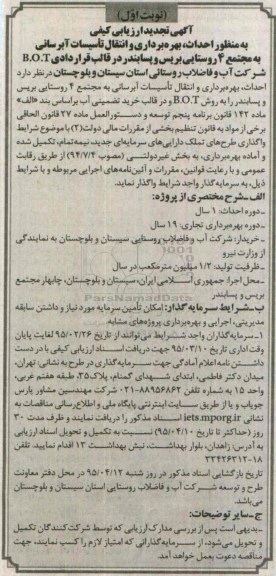 (نوبت اول)
آگهی تجدید ارزیابی کیفی
به منظور احداث، بهره‌برداری و انتقال تأسیسات آبرسانی
به مجتمع ۴ روستایی بریس و پسابندر در قالب قراردادی B.O.T
شرکت آب و فاضلاب روستائی استان سیستان و بلوچستان در نظر دارد
احداث، بهره‌برداری و انتقال تأسیسات آبرسانی به مجتمع ۴ روستایی بریس
و پسابندر را به روش B.O.T و در قالب خرید تضمینی آب براساس بند «الف»
ماده ۱۴۲ قانون برنامه پنجم توسعه و دستورالعمل ماده ۲۷ قانون الحاقی
برخی از مواد به قانون تنظیم بخشی از مقررات مالی دولت(۲) با موضوع شرایط
واگذاری طرح‌های تملک دارایی‌های سرمایه‌ای جدید، نیمه‌تمام، تکمیل شده
و آماده بهره‌برداری، به بخش غیردولتی (مصوب ۹۴/۷/۴) از طریق رقابت
عمومی و با رعایت قوانین، مقررات و آئین‌نامه‌های اجرایی مربوطه و با شرایط
ذیل، به سرمایه‌گذار واجد شرایط واگذار نماید.
الف ـ شرح مختصری از پروژه:
ـ دوره احداث: ۱ سال
ـ دوره بهره‌برداری تجاری: ۱۹ سال
ـ خریدار: شرکت آب و فاضلاب روستایی سیستان و بلوچستان به نمایندگی
از وزارت نیرو
ـ ظرفیت تولید: ۱/۳ میلیون مترمکعب در سال
ـ محل اجرا: جمهوری اسلامی ایران، سیستان و بلوچستان، چابهار مجتمع
بریس و پسابندر
ب ـ شرایط سرمایه‌گذار: امکان تأمین سرمایه مورد نیاز و داشتن سابقه
مدیریتی، اجرایی و بهره‌برداری پروژه‌های مشابه
۱ـ سرمایه‌گذاران واجد شرایط می‌توانند از تاریخ ۹۵/۰۲/۲۶ لغایت پایان
وقت اداری تاریخ ۹۵/۰۳/۱۰ جهت دریافت اسناد ارزیابی کیفی با در دست
داشتن نامه اعلام آمادگی جهت سرمایه‌گذاری در طرح به نشانی: تهران،
میدان دکتر فاطمی، ابتدای شهدای گمنام، پلاک ۳۵، طبقه هفتم غربی،
واحد ۱۵ به شماره تلفن ۸۸۹۵۶۸۶۲-۰۲۱ شرکت مهندسین مشاور پارس
جویاب و یا از طریق سایت اینترنتی پایگاه ملی و اطلاع‌رسانی مناقصات به
نشانی iets.mporg.ir اسناد مذکور را دریافت نمایند و ظرف مدت ۳۰
روز (حداکثر تا تاریخ ۹۵/۰۴/۱۰) نسبت به تکمیل و تحویل اسناد ارزیابی
به آدرس: زاهدان، بلوار بهداشت، نبش بهداشت ۱۳ اقدام نمایید. تلفن
۱۸-۳۳۴۲۶۲۱۲
تاریخ بازگشایی اسناد مذکور در روز شنبه ۹۵/۰۴/۱۲ در محل دفتر معاونت
طرح و توسعه شرکت آب و فاضلاب روستایی استان سیستان و بلوچستان
می‌باشد.
ج ـ سایر توضیحات:
ـ بدیهی است پس از بررسی مدارک ارزیابی که توسط شرکت‌کنندگان تکمیل
و تحویل می‌شود، از سرمایه‌گذارانی که امتیاز لازم را کسب نمایند، جهت
مناقصه دعوت بعمل خواهد آمد.